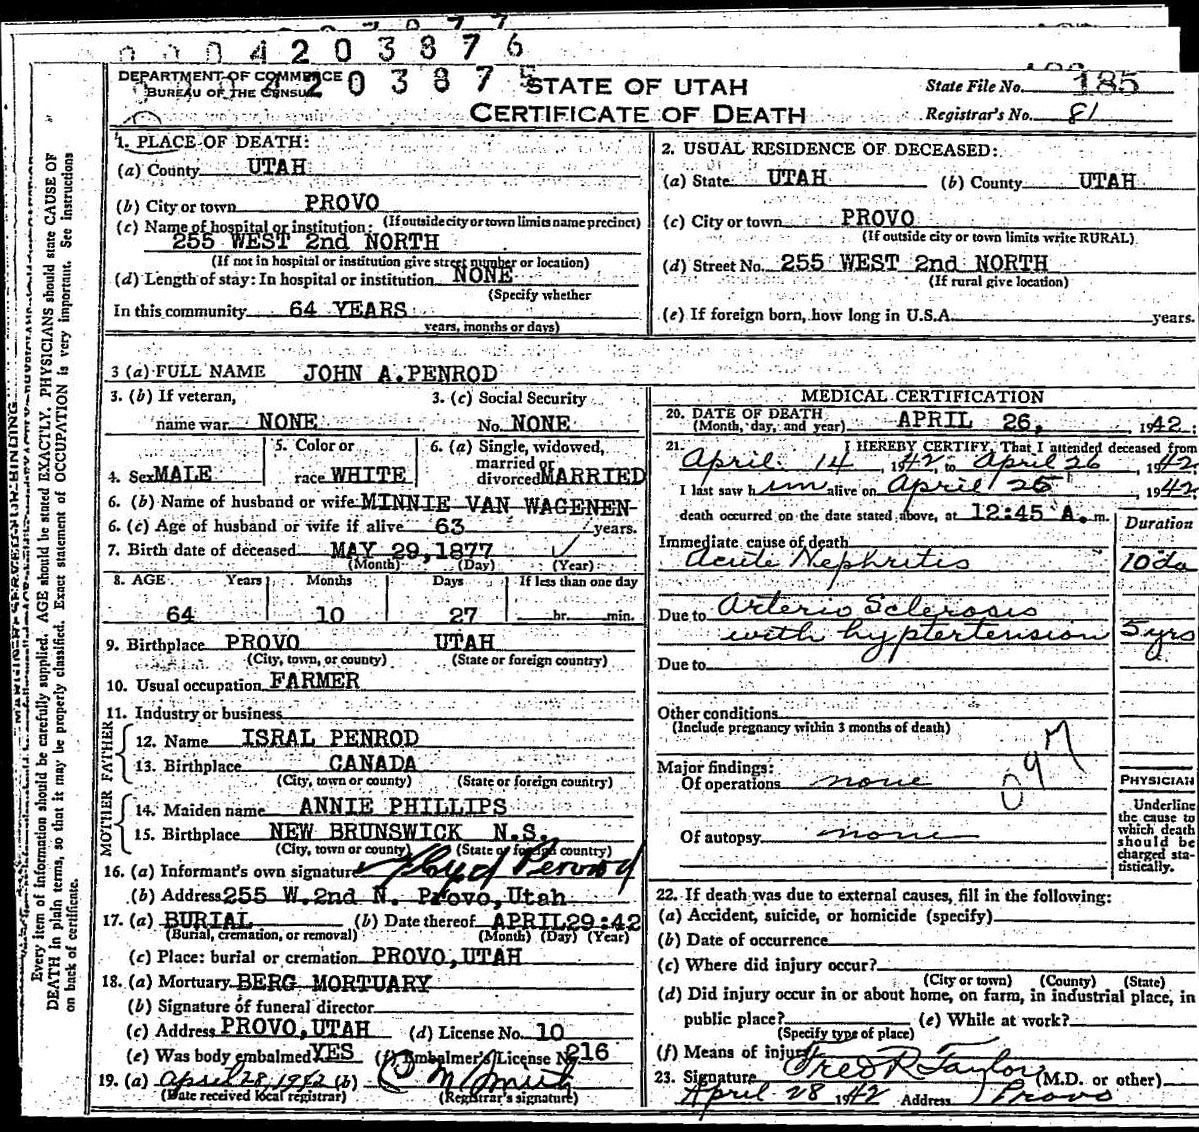 0004203876
DEPARTMENT OF COMMERCE
BUREAU OF THE CENSUS
4203875
STATE OF UTAH
CERTIFICATE OF DEATH
State File No. 185
Registrar's No. 81
1. PLACE OF DEATH:
(a) County UTAH
(b) City or town PROVO
(If outside city or town limits name precinct)
(c) Name of hospital or institution:
255 WEST 2nd NORTH
(If not in hospital or institution give street number or location)
(d) Length of stay: In hospital or institution NONE
(Specify whether
In this community 64 YEARS
years, months or days)
2. USUAL RESIDENCE OF DECEASED:
(a) State UTAH (b) County UTAH
(c) City or town PROVO
(If outside city or town limits write RURAL)
(d) Street No. 255 WEST 2nd NORTH
(If rural give location)
(e) If foreign born, how long in U.S.A. years.
3 (a) FULL NAME JOHN A. PENROD
3. (b) If veteran, 3. (c) Social Security
name war NONE No. NONE
4. Sex MALE 5. Color or race WHITE 6. (a) Single, widowed, married or divorced MARRIED
6. (b) Name of husband or wife MINNIE VAN WAGENEN
6. (c) Age of husband or wife if alive 63 years.
7. Birth date of deceased MAY 29, 1877
(Month) (Day) (Year)
8. AGE Years Months Days If less than one day
64 10 27 hr. min.
9. Birthplace PROVO UTAH
(City, town, or county) (State or foreign country)
10. Usual occupation FARMER
11. Industry or business
FATHER
12. Name ISRAL PENROD
13. Birthplace CANADA
(City, town or county) (State or foreign country)
MOTHER
14. Maiden name ANNIE PHILLIPS
15. Birthplace NEW BRUNSWICK N.S.
(City, town or county) (State or foreign country)
16. (a) Informant's own signature Floyd Penrod
(b) Address 255 W. 2nd N. Provo, Utah
17. (a) BURIAL (b) Date thereof APRIL 29:42
(Burial, cremation, or removal) (Month) (Day) (Year)
(c) Place: burial or cremation PROVO, UTAH
18. (a) Mortuary BERG MORTUARY
(b) Signature of funeral director
(c) Address PROVO, UTAH (d) License No. 10
(e) Was body embalmed YES (f) Embalmer's License No. 216
19. (a) April 28, 1942 (b)
(Date received local registrar) (Registrar's signature)
MEDICAL CERTIFICATION
20. DATE OF DEATH
(Month, day, and year) APRIL 26, 1942:
21. I HEREBY CERTIFY, That I attended deceased from
April 14, 1942, to April 26, 1942.
I last saw him alive on April 26, 1942
death occurred on the date stated above, at 12:45 A. m.
Duration
Immediate cause of death
Acute Nephritis 10 da
Due to Arterio Sclerosis
with hyptertension 5 yrs
Due to
Other conditions
(Include pregnancy within 3 months of death)
Major findings:
Of operations none
Of autopsy none
PHYSICIAN
Underline
the cause to
which death
should be
charged sta-
tistically.
22. If death was due to external causes, fill in the following:
(a) Accident, suicide, or homicide (specify)
(b) Date of occurrence
(c) Where did injury occur?
(City or town) (County) (State)
(d) Did injury occur in or about home, on farm, in industrial place, in
public place? (e) While at work?
(Specify type of place)
(f) Means of injury
23. Signature Fred R Taylor (M.D. or other)
April 28 1942 Address Provo
Every item of information should be carefully supplied. AGE should be stated EXACTLY. PHYSICIANS should state CAUSE OF
DEATH in plain terms, so that it may be properly classified. Exact statement of OCCUPATION is very important. See instructions
on back of certificate.